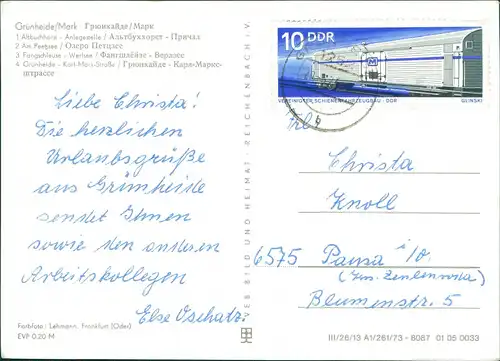 Grünheide/Mark Грюнхайде/Марк
1 Altbuchhorst - Anlegestelle / Альтбуххорст - Причал
2 Am Peetzsee / Озеро Петцзее
3 Fangschleuse - Werlsee / Фангшлёйзе - Верлзее
4 Grünheide - Karl-Marx-Straße / Грюнхайде - Карл-Маркс-
штрассе
10 DDR
VEREINIGTER SCHIENENFAHRZEUGBAU · DDR GLINSKI
Liebe Christa!
Die herzlichen
Urlaubsgrüße
aus Grünheide
sendet Ihnen
sowie den anderen
Arbeitskollegen
Else Oschatz.
Frl.
Christa
Knoll
6575 Pausa i/V.
(Krs. Zeulenroda)
Blumenstr. 5
VEB BILD UND HEIMAT · REICHENBACH i. V.
Farbfoto: Lehmann, Frankfurt (Oder)
EVP 0.20 M
III/26/13 A1/261/73 - 6087 01 05 0033